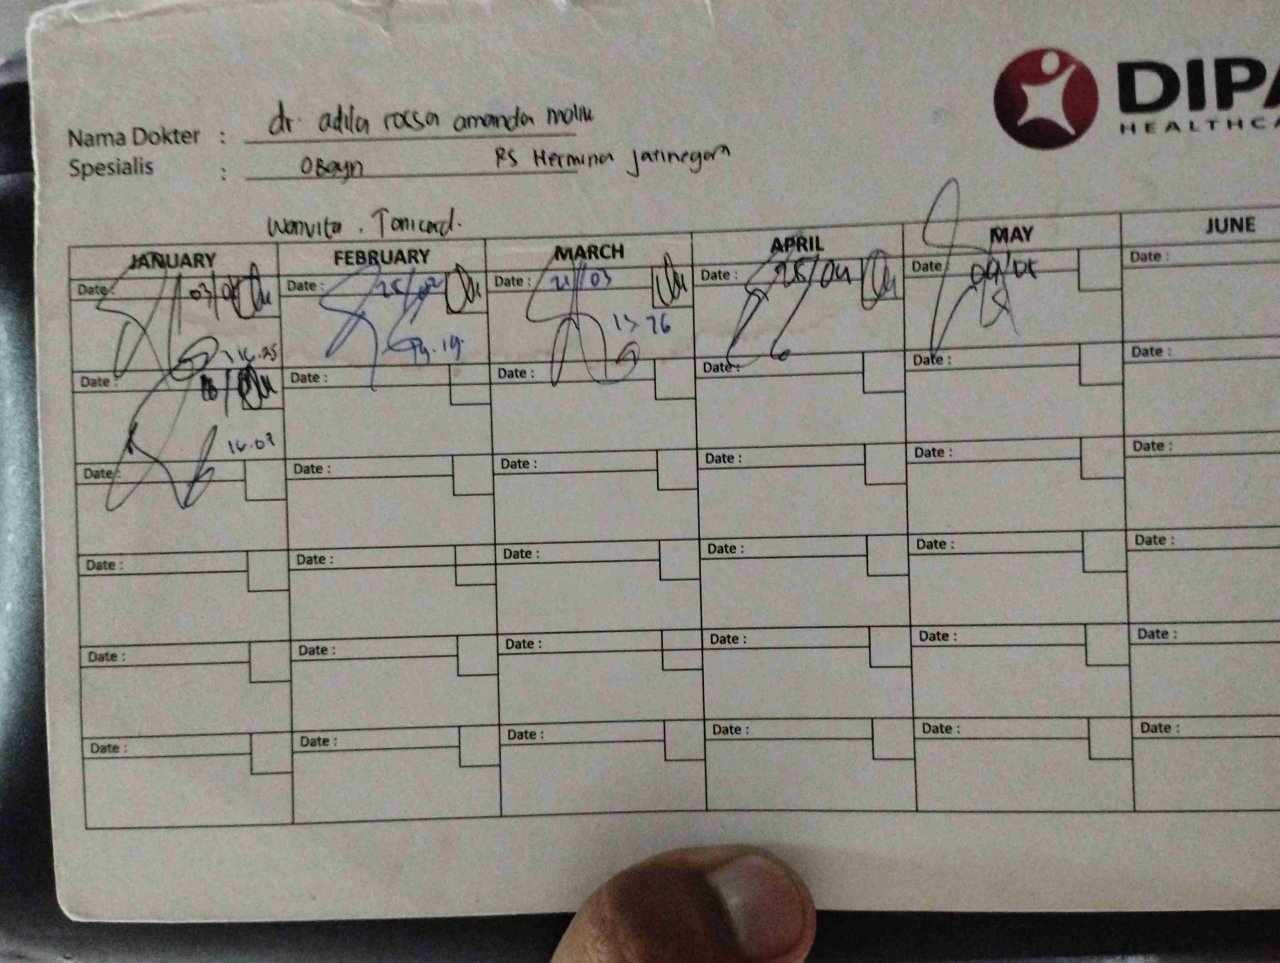 DIPA
HEALTHCA
Nama Dokter : dr. adila rossa amanda malik
Spesialis : Obgyn RS Hermina Jatinegara
Wonvita . Tonicard.
JANUARY FEBRUARY MARCH APRIL MAY JUNE
Date : 03/01 Date : 25/02 Date : 21/03 Date : 25/04 Date : 09/05 Date :
16.25 19.19. 13 26
Date : Date : Date : Date : Date : Date :
16.02
Date : Date : Date : Date : Date : Date :
Date : Date : Date : Date : Date : Date :
Date : Date : Date : Date : Date : Date :
Date : Date : Date : Date : Date : Date :